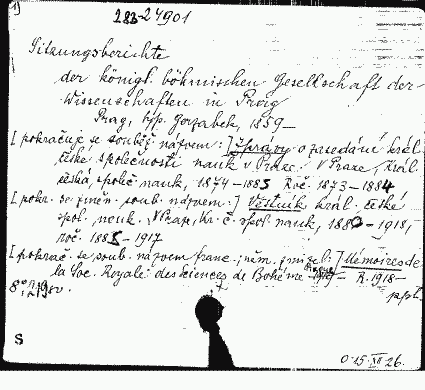 1)
283-24901
Sitzungsberichte
der königl. böhmischen Gesellschaft der
Wissenschaften in Prag
Prag, typ. 1859-
[pokračuje se souběž. názvem:] Zprávy o zasedání král.
české společnosti nauk v Praze. V Praze, král.
česká společ. nauk, 1874-1885 Roč. 1873-1884,
[pokr. se změn. soub. názvem:] Věstník král. české
spol. nauk. V Praze, kr. č. spol. nauk, 1885-1918,
roč. 1885-1917
[pokrač. se soub. názvem franc.,
něm. ] Mémoires de
la Soc. Royale des Sciences de Bohême 1919- R. 1918-
8° sv.
S
0-15.XII 26.